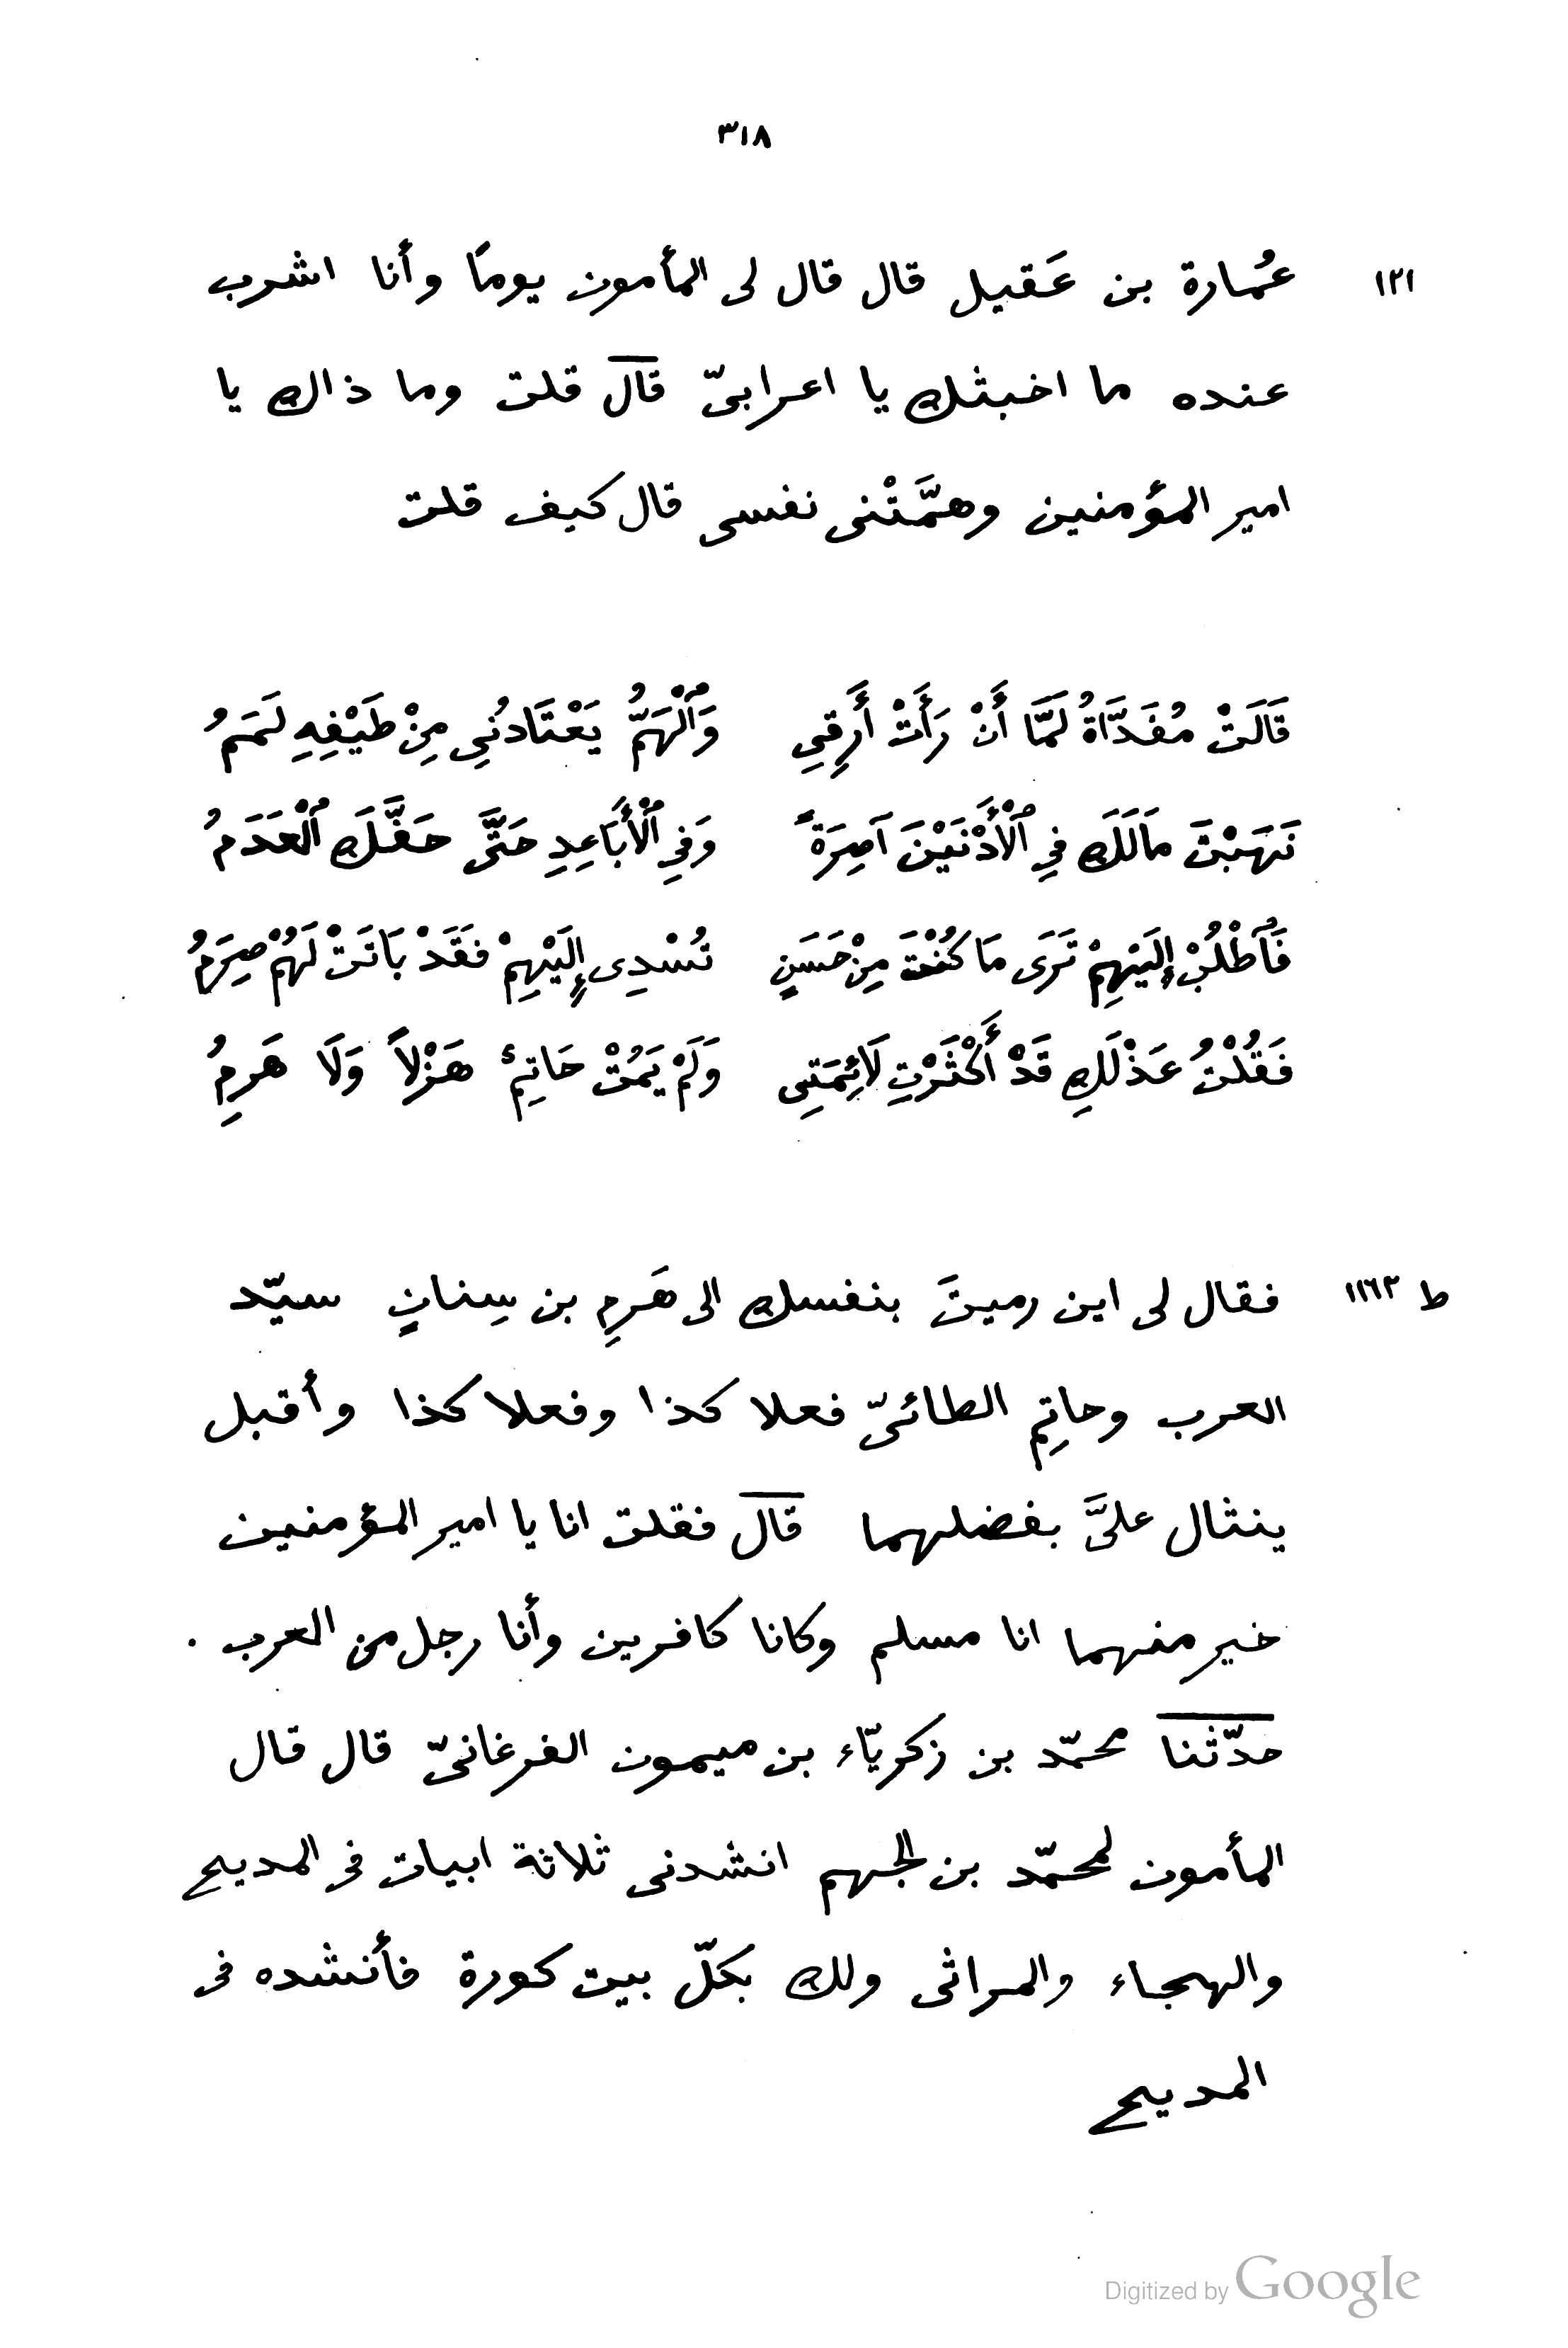 ٣١٨
١٣١ عُمارة بن عَقيل قال قال لى المأمون يومًا وأنا اشرب
عنده ما اخبثك يا اعرابىّ قال قلت وما ذاك يا
امير المؤمنين وهمَّتْنى نفسى قال كيف قلت
قَالَتْ مُفَدَّاةُ لَمَّا أَنْ رَأَتْ أَرَقِي وَٱلْهَمُّ يَعْتَادُنِي مِنْ طَيْفِهِ لَمَمُ
نَهَبْتَ مَالَكَ فِي ٱلْأَدْنَيْنَ آصِرَةً وَفِي ٱلْأَبَاعِدِ حَتَّى حَفَّكَ ٱلْعَدَمُ
فَٱطْلُبْ إِلَيْهِمْ تَرَى مَا كُنْتَ مِنْ حَسَنٍ تُسْدِى إِلَيْهِمْ فَقَدْ بَاتَتْ لَهُمْ صِرَمُ
فَقُلْتُ عَذْلَكِ قَدْ أَكْثَرْتِ لَائِمَتِى وَلَمْ يَمُتْ حَاتِمٌ هَزْلًا وَلَا هَرِمُ
ط ١١٦٣ فقال لى اين رميتَ بنفسك الى هَرِمِ بن سِنانٍ سيّد
العرب وحاتِمِ الطائىّ فعلا كذا وفعلا كذا وأقبل
ينثال علىَّ بفضلهما قال فقلت انا يا امير المؤمنين
خير منهما انا مسلم وكانا كافرين وأنا رجل من العرب .
حدّثنا محمّد بن زكريّاء بن ميمون الفرغانىّ قال قال
المأمون لمحمّد بن الجهم انشدنى ثلاثة ابيات فى المديح
والهجاء والمراثى ولك بكلّ بيت كورة فأنشده فى
المديح
Digitized by Google